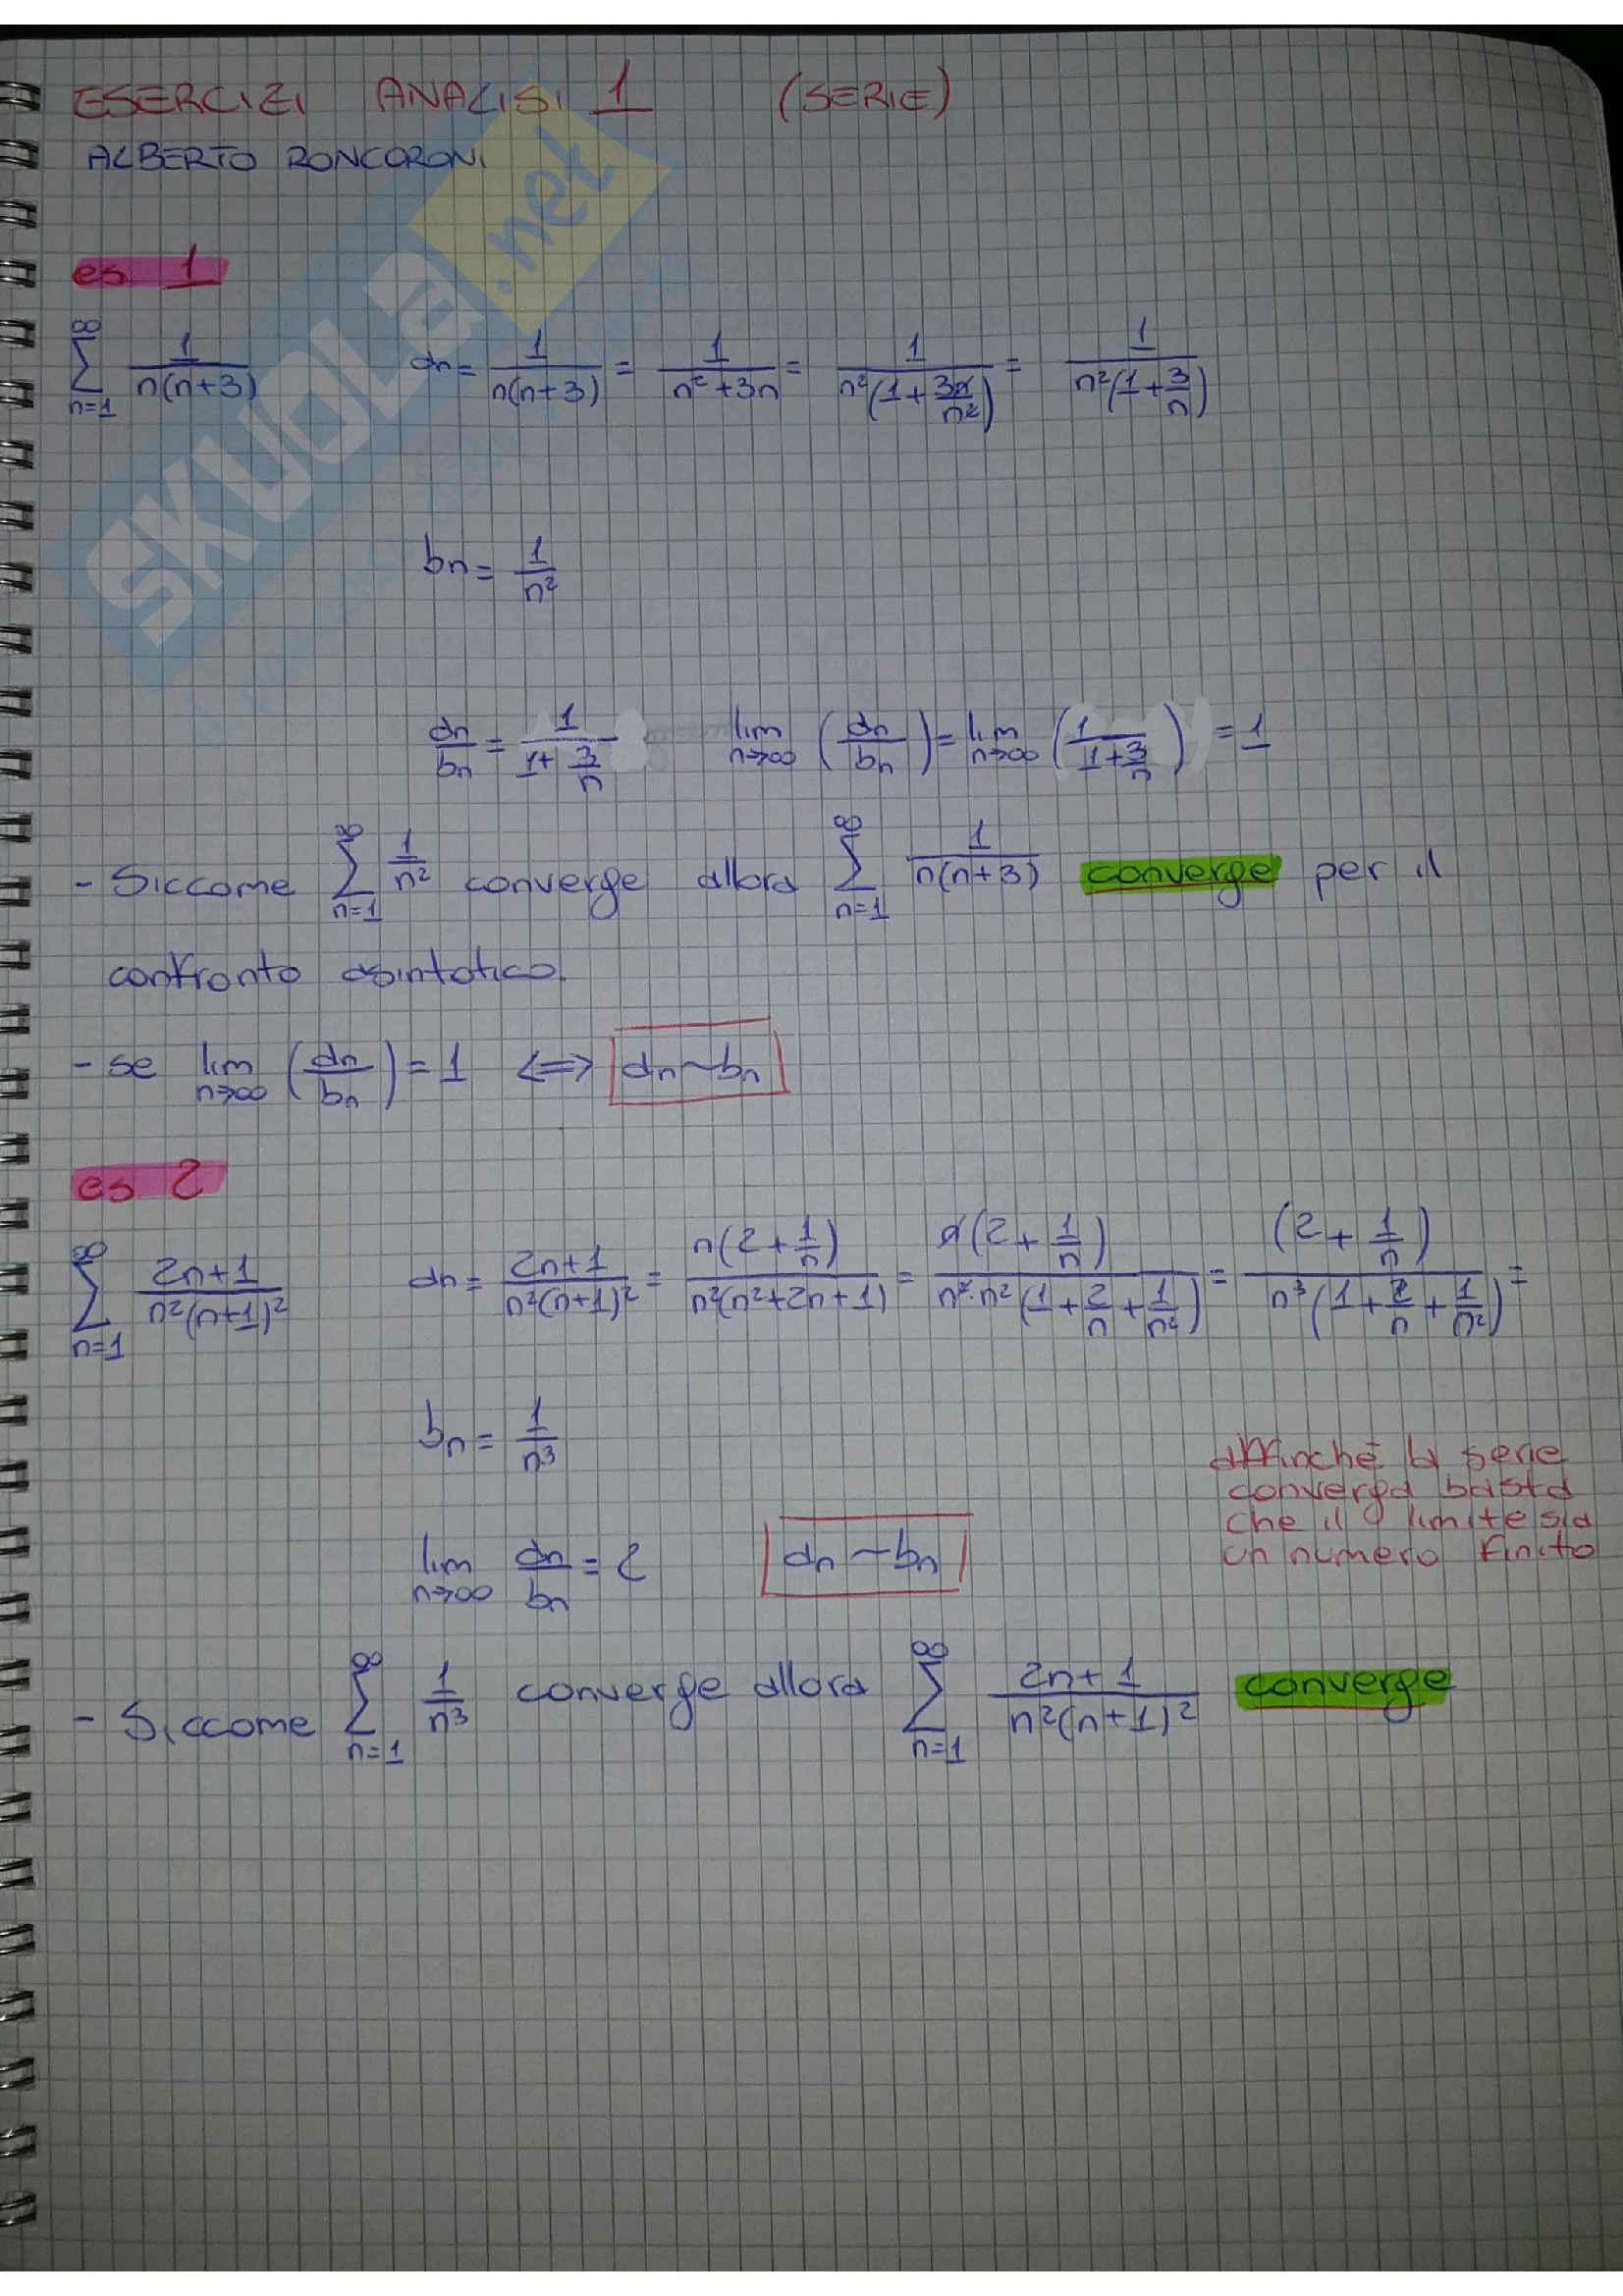 ESERCIZI ANALISI 1 (SERIE)
ALBERTO RONCORONI
SKUOLA.net
es 1
∑_{n=1}^{∞} 1/(n(n+3)) an = 1/(n(n+3)) = 1/(n²+3n) = 1/(n²(1+3n/n²)) = 1/(n²(1+3/n))
bn = 1/n²
an/bn = 1/(1+3/n) lim_{n→∞} (an/bn) = lim_{n→∞} (1/(1+3/n)) = 1
- Siccome ∑_{n=1}^{∞} 1/n² converge allora ∑_{n=1}^{∞} 1/(n(n+3)) converge per il
confronto asintotico.
- se lim_{n→∞} (an/bn) = 1 ⟺ an~bn
es 2
∑_{n=1}^{∞} (2n+1)/(n²(n+1)²) an = (2n+1)/(n²(n+1)²) = n(2+1/n)/(n²(n²+2n+1)) = n(2+1/n)/(n²·n²(1+2/n+1/n²)) = (2+1/n)/(n³(1+2/n+1/n²)) =
bn = 1/n³
affinché la serie
converga basta
che il limite sia
un numero finito
lim_{n→∞} an/bn = 2 an~bn
- Siccome ∑_{n=1}^{∞} 1/n³ converge allora ∑_{n=1}^{∞} (2n+1)/(n²(n+1)²) converge